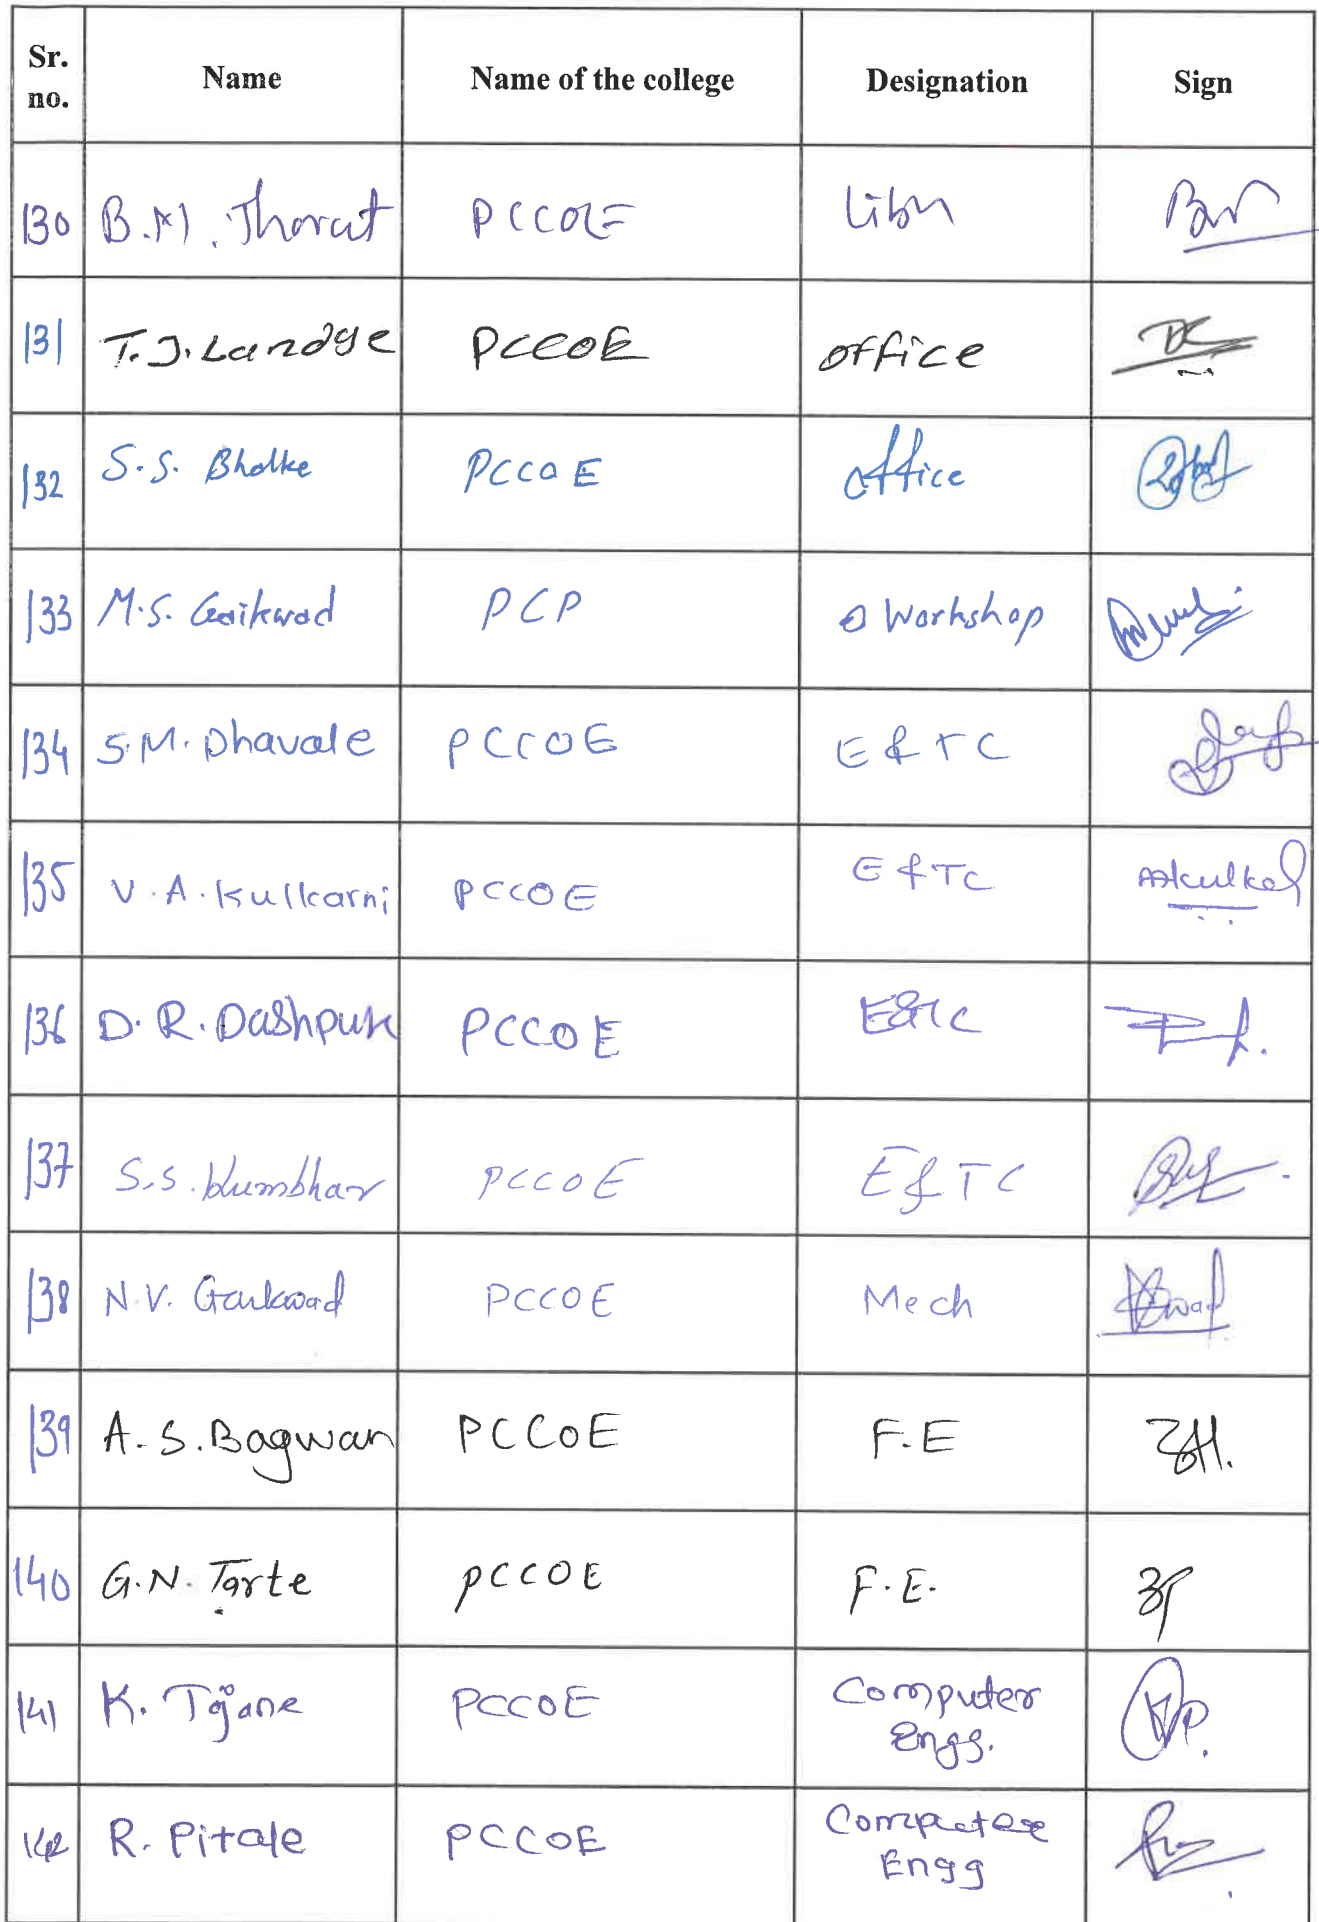 Sr. no. Name Name of the college Designation Sign
130 B.M. Thorat PCCOE Libn
131 T.J. Landge PCCOE office
132 S.S. Bhalke PCCOE office
133 M.S. Gaikwad PCP Workshop
134 S.M. Dhavale PCCOE E & TC
135 V.A. Kulkarni PCCOE E & TC
136 D.R. Dashpute PCCOE E&TC
137 S.S. Kumbhar PCCOE E & TC
138 N.V. Gaikwad PCCOE Mech
139 A.S. Bagwan PCCOE F.E
140 G.N. Tarte PCCOE F.E.
141 K. Tajane PCCOE Computer Engg.
142 R. Pitale PCCOE Computer Engg